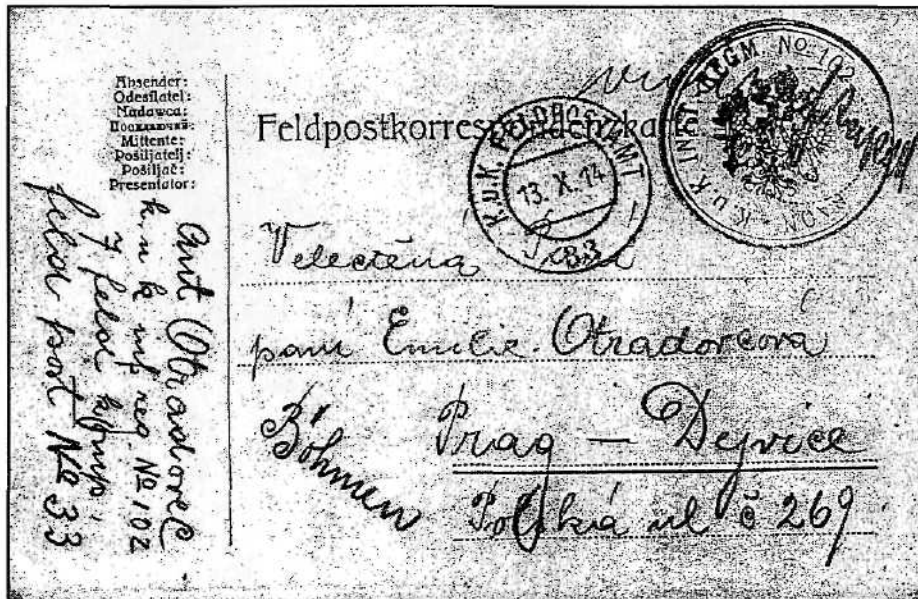 Absender:
Odesílatel:
Nadawca:
Mittente:
Pošiljatelj:
Pošiljač:
Presentator:
Ant Otradovec
k u k inf reg. № 102
7 feld komp.
feld post № 33
Feldpostkorrespondenzka
K.u.K. FELDPOSTAMT
13. X. 14
33
K.u.K. INFT. REGM. No. 102
Velectěná Paní
paní Emilie Otradovcová
Böhmen Prag — Dejvice
Polská ul č 269